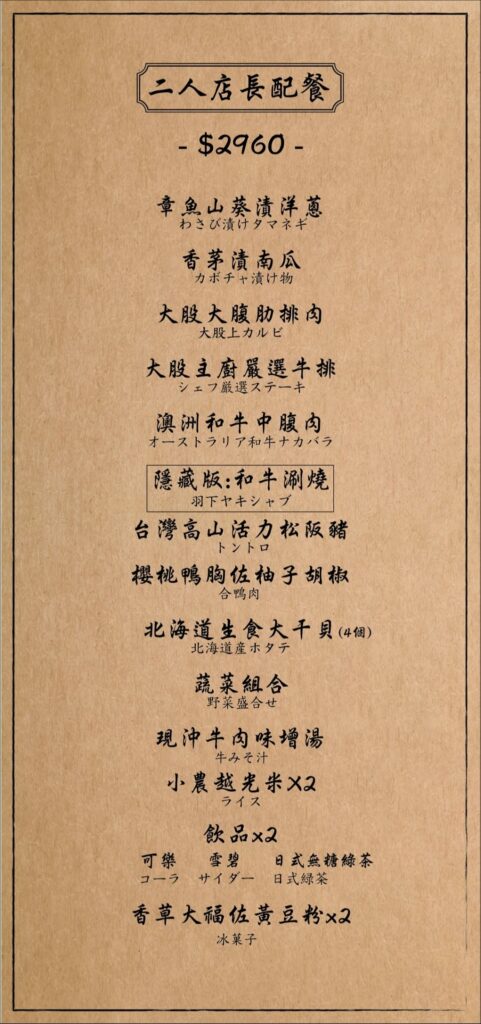 二人店長配餐
- $2960 -
章魚山葵漬洋蔥
わさび漬けタマネギ
香茅漬南瓜
カボチャ漬け物
大股大腹肋排肉
大股上カルビ
大股主廚嚴選牛排
シェフ厳選ステーキ
澳洲和牛中腹肉
オーストラリア和牛ナカバラ
隱藏版:和牛涮燒
羽下ヤキシャブ
台灣高山活力松阪豬
トントロ
櫻桃鴨胸佐柚子胡椒
合鴨肉
北海道生食大干貝(4個)
北海道産ホタテ
蔬菜組合
野菜盛合せ
現沖牛肉味增湯
牛みそ汁
小農越光米X2
ライス
飲品x2
可樂 雪碧 日式無糖綠茶
コーラ サイダー 日式緑茶
香草大福佐黃豆粉x2
冰菓子